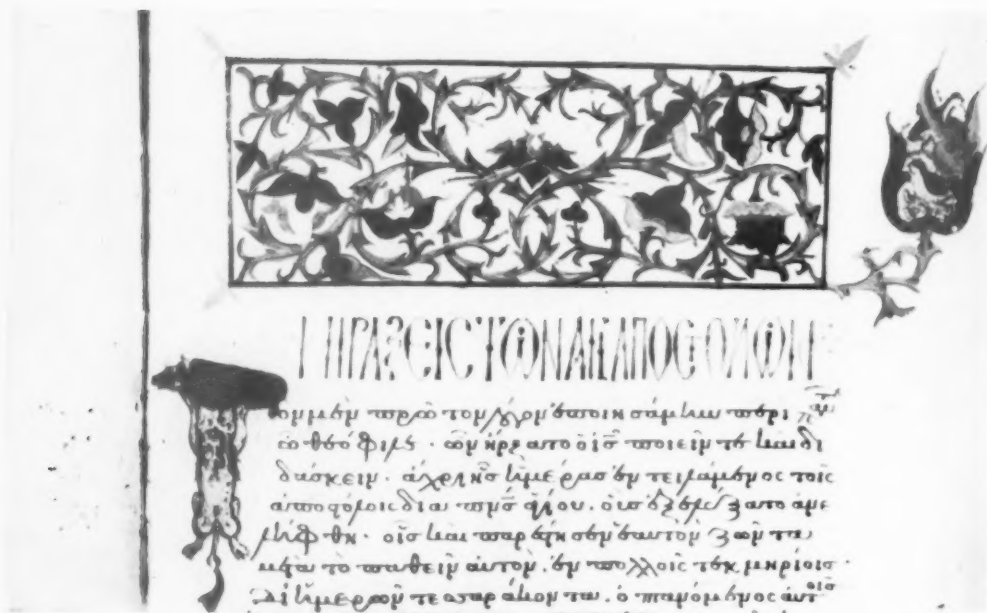 ΠΡΑΞΕΙΣ ΤΩΝ ΑΓ ΑΠΟΣΤΟΛΩΝ
Τὸν μὲν πρῶτον λόγον ἐποιησάμην περὶ
ὦ θεόφιλε · ὧν ἤρξατο ὁ ις ποιεῖν τὲ καὶ δι
δάσκειν · ἄχρι ἧς ἡμέρας ἐντειλάμενος τοῖς
ἀποστόλοις διὰ πνς ἁγίου · οὓς ἐξελέξατο ἀνε
λήφθη · οἷς καὶ παρέστησεν ἑαυτὸν ζῶντα
μετὰ τὸ παθεῖν αὐτὸν · ἐν πολλοῖς τεκμηρίοις ·
δι ἡμερῶν τεσσαράκοντα · ὀπτανόμενος αὐτοῖς